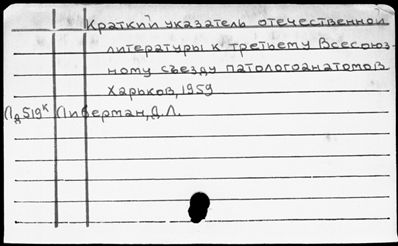 Краткий указатель отечественной
литературы к третьему Всесоюз-
ному съезду патологоанатомов
Харьков, 1959
Пд519к Либерман, Д.Л.